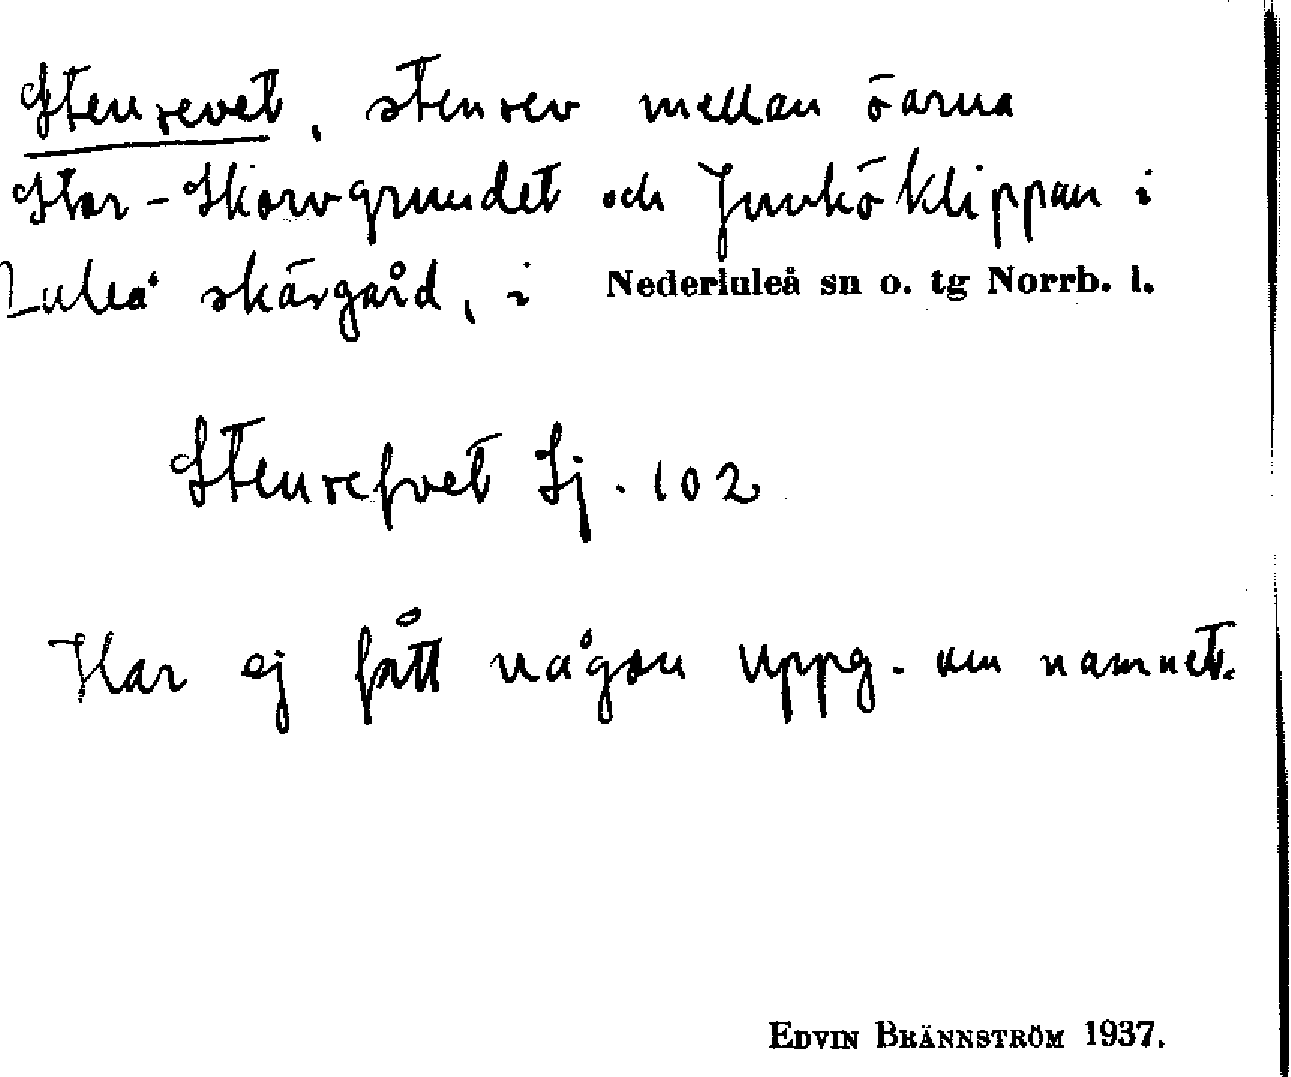 Stenrevet, stenrev mellan öarna
Stor-Skorvgrundet och Junköklippan i
Luleå skärgård, i Nederluleå sn o. tg Norrb. l.
Stenrefvet Sj. 102
Har ej fått någon uppg. om namnet.
EDVIN BRÄNNSTRÖM 1937.